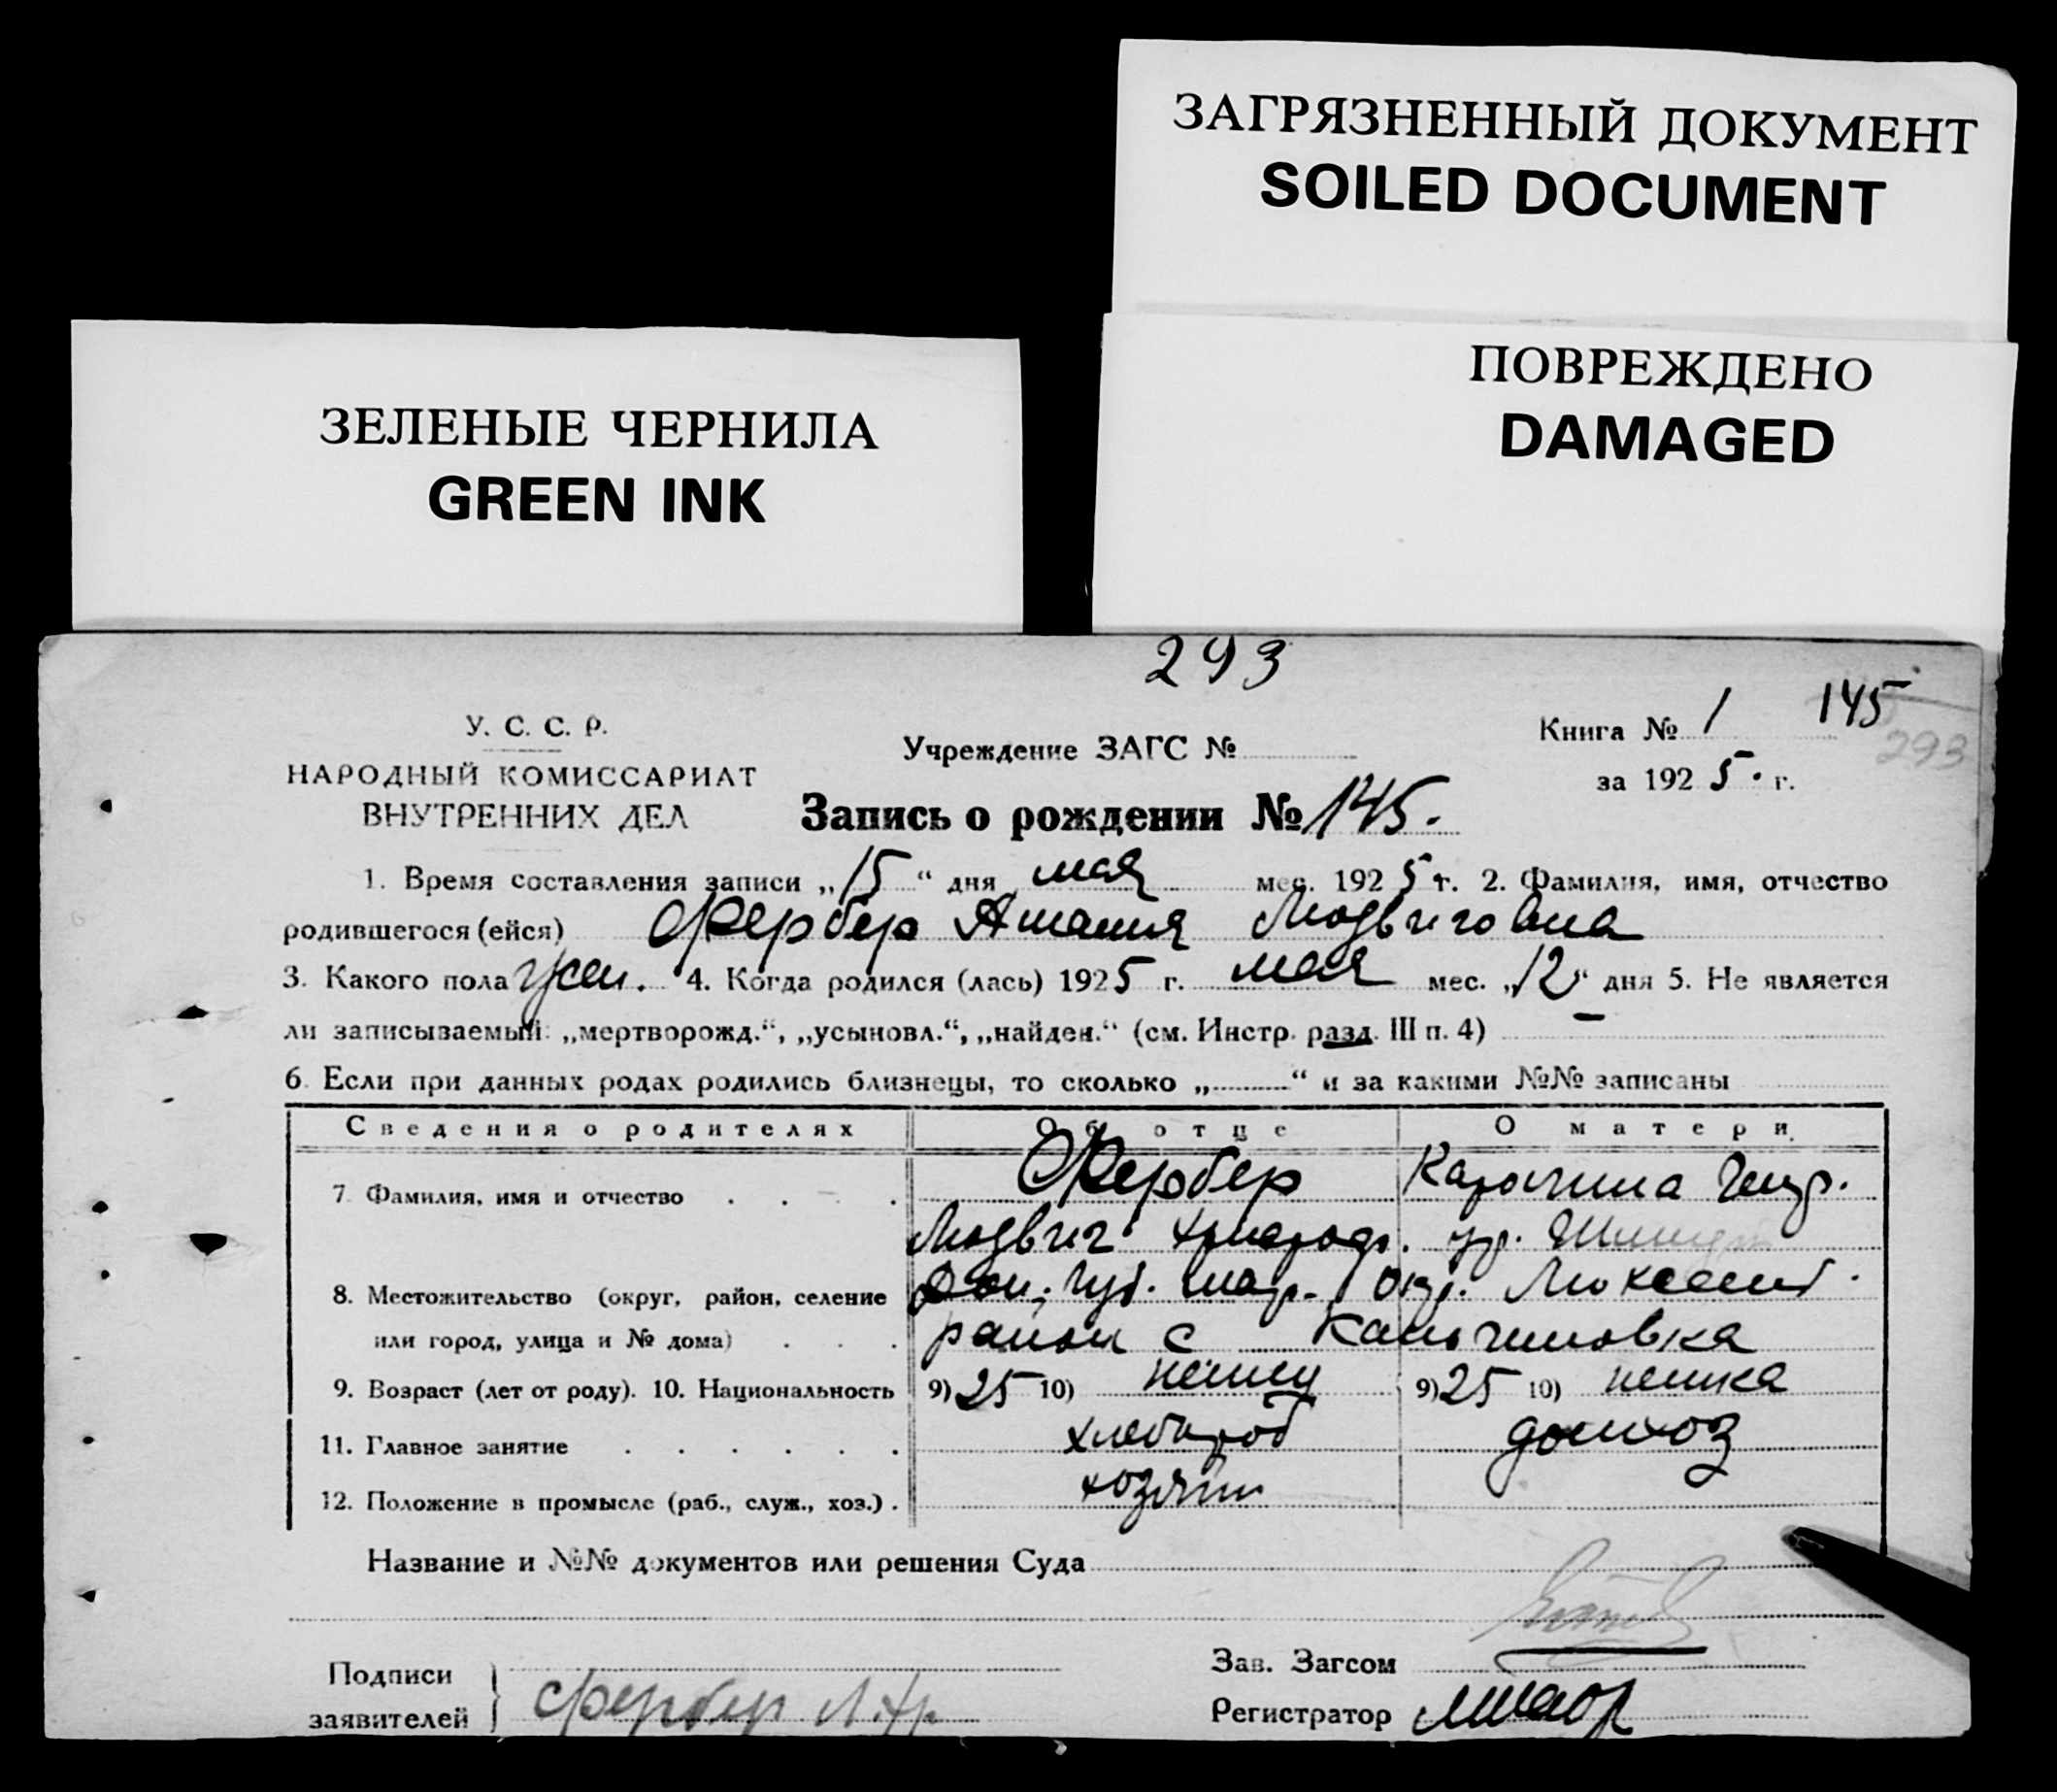 ЗАГРЯЗНЕННЫЙ ДОКУМЕНТ
SOILED DOCUMENT
ПОВРЕЖДЕНО
DAMAGED
ЗЕЛЕНЫЕ ЧЕРНИЛА
GREEN INK
293
У. С. С. Р.
НАРОДНЫЙ КОМИССАРИАТ
ВНУТРЕННИХ ДЕЛ
Учреждение ЗАГС №
Книга № 1 145
293
за 1925. г.
Запись о рождении № 145.
1. Время составления записи „15“ дня мая мес. 1925 г. 2. Фамилия, имя, отчество
родившегося (ейся) Фербер Амалия Людвиговна
3. Какого пола жен. 4. Когда родился (лась) 1925 г. мая мес. „12“ дня 5. Не является
ли записываемый: „мертворожд.“, „усыновл.“, „найден.“ (см. Инстр. разд. III п. 4) —
6. Если при данных родах родились близнецы, то сколько „ “ и за какими №№ записаны
Сведения о родителях Об отце О матери
7. Фамилия, имя и отчество Фербер Каролина Генр.
Людвиг ур.
8. Местожительство (округ, район, селение Дон. губ. Мар. Окр. Люксемб.
или город, улица и № дома) район с
9. Возраст (лет от роду). 10. Национальность 9) 25 10) немец 9) 25 10) немка
11. Главное занятие хлебороб домхоз
12. Положение в промысле (раб., служ., хоз.) хозяин
Название и №№ документов или решения Суда
Подписи
заявителей Фербер Л. Хр.
Зав. Загсом
Регистратор